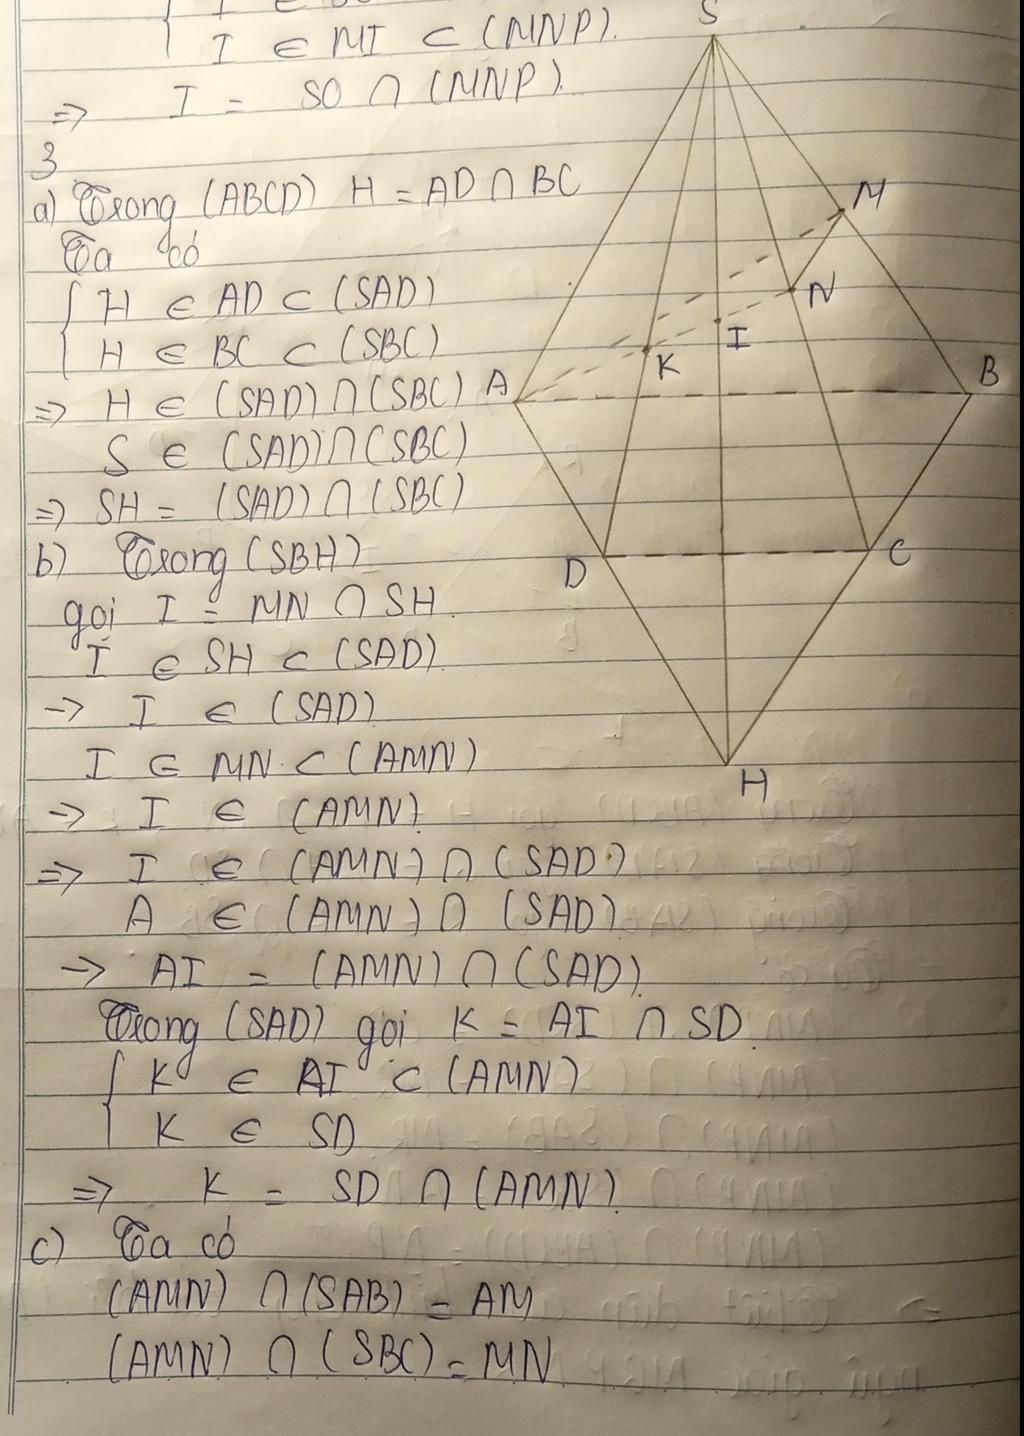 I ∈ MI ⊂ (MNP).
⇒ I = SO ∩ (MNP).
3
a) Trong (ABCD) H = AD ∩ BC
Ta có
H ∈ AD ⊂ (SAD)
H ∈ BC ⊂ (SBC)
⇒ H ∈ (SAD) ∩ (SBC)
S ∈ (SAD) ∩ (SBC)
⇒ SH = (SAD) ∩ (SBC)
b) Trong (SBH)
gọi I = MN ∩ SH.
I ∈ SH ⊂ (SAD).
→ I ∈ (SAD)
I ∈ MN ⊂ (AMN)
→ I ∈ (AMN)
⇒ I ∈ (AMN) ∩ (SAD)
A ∈ (AMN) ∩ (SAD)
→ AI = (AMN) ∩ (SAD).
Trong (SAD) gọi K = AI ∩ SD.
K ∈ AI ⊂ (AMN)
K ∈ SD
⇒ K = SD ∩ (AMN)
c) Ta có
(AMN) ∩ (SAB) = AM
(AMN) ∩ (SBC) = MN
S
M
N
I
K
A
B
D
C
H